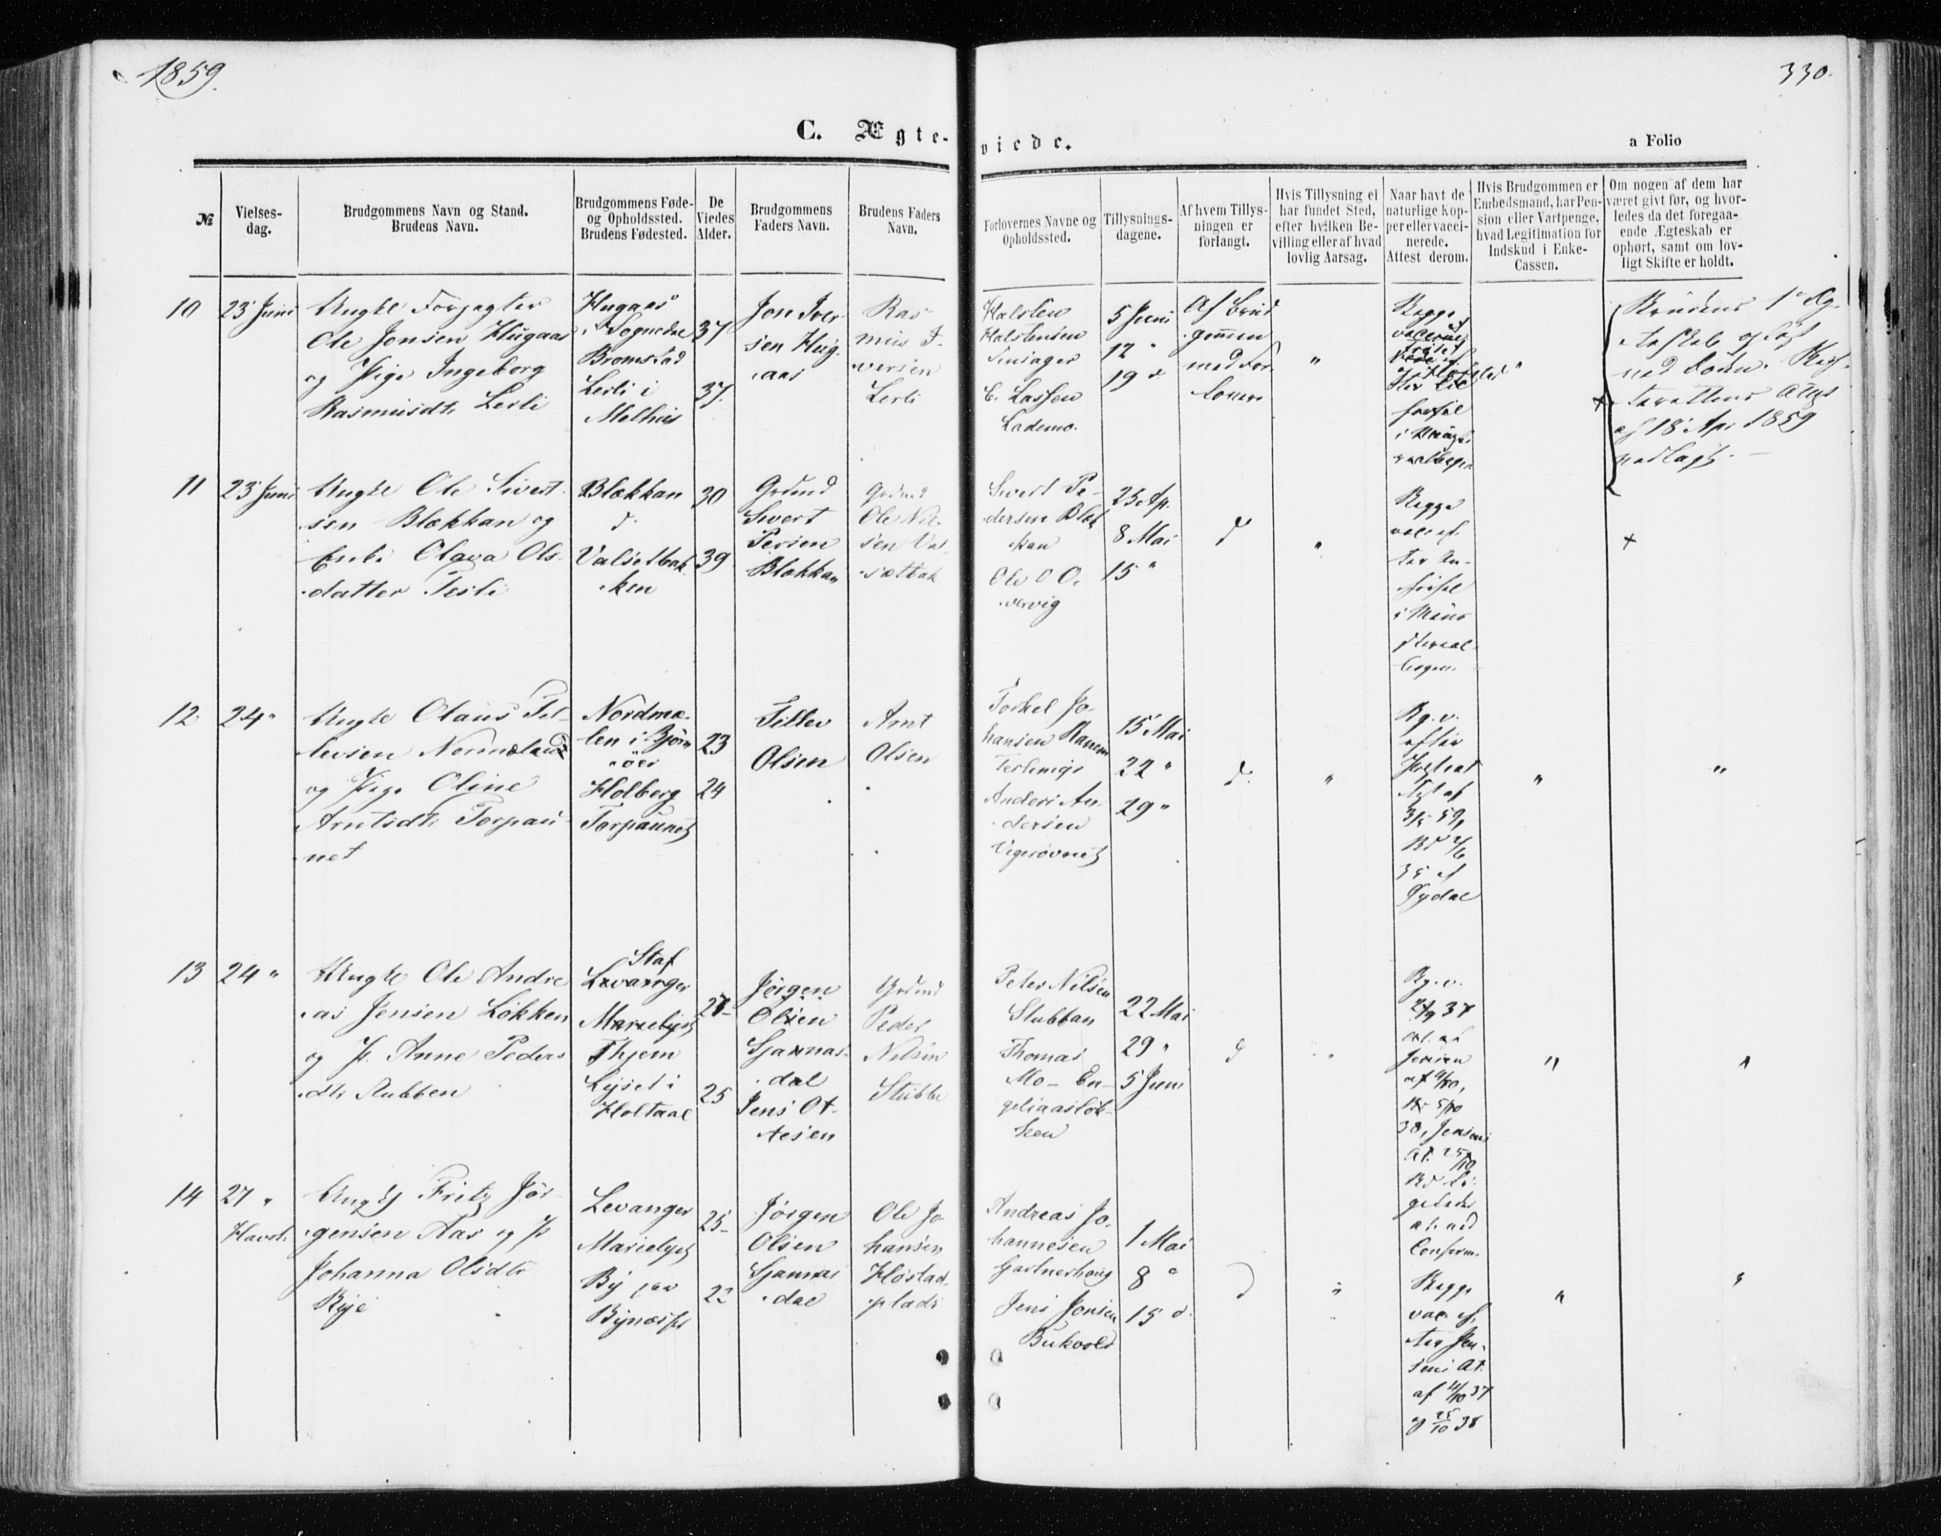 1859.
330.
C. Ægte-
viede.
a Folio
№
Vielses-
dag.
Brudgommens Navn og Stand.
Brudens Navn.
Brudgommens Føde-
og Opholdssted.
Brudens Fødested.
De
Viedes
Alder.
Brudgommens
Faders Navn.
Brudens Faders
Navn.
Forlovernes Navne og
Opholdssted.
Tillysnings-
dagene.
Af hvem Tillys-
ningen er
forlangt.
Hvis Tillysning ei
har fundet Sted,
efter hvilken Be-
villing eller af hvad
lovlig Aarsag.
Naar havt de
naturlige Kop-
per eller vacci-
nerede.
Attest derom.
Hvis Brudgommen er
Embedsmand, har Pen-
sion eller Vartpenge,
hvad Legitimation for
Indskud i Enke-
Cassen.
Om nogen af dem har
været givt før, og hvor-
ledes da det foregaa-
ende Ægteskab er
ophørt, samt om lov-
ligt Skifte er holdt.
10
23 Juni
Ungkl Forpagter
Ole Jonsen Hugaas
og Pige Ingeborg
Rasmusdtr Lerli
Hugaas
i Sognedal
Bromstad
Lerli i
Melhus
37
37
Jon Iver-
sen Hug-
aas
Ras-
mus I-
versen
Lerli
Halsten
Halstensen
C. Lassen
Lademo.
5 Juni
12 "
19 d
Af Brud-
gommen
med For-
lovere
"
Begge
"
Brudens 1e Æg-
teskab opløst
ved Døden. Skif-
terettens Attest
af 18 Apr 1859
vedlagt. —
11
23 Juni
Ungkl Ole Sivert-
sen Blækkan og
Enke Olava Ols-
datter Lerli
Blækkan
d.
Valsetbak-
ken
30
39
Grdmd
Sivert
Persen
Blækkan
Grdmd
Ole Nil-
sen Val-
sætbak
Sivert Pe-
dersen Blæk-
kan
Ole O O.
vervig
25 Ap.
8 Mai
15 "
d
"
Begge
vac. ef-
ter An-
førsel
i Mini-
sterial-
bogen
+
12
24 "
Ungkl Olaus Tel-
levsen Normeland
og Pige Oline
Arntsdtr Torpau-
net
Nordmæ-
len i Bjørn-
öer
Holberg
Torpaunet
23
24
Tellev
Olsen
Arnt
Olsen
Torkel Jo-
hansen Hanem
Anders An-
dersen
Ugerøvnet
15 Mai
22 "
29 "
d.
"
Bg. v.
efter
35 af
Tydal
"
"
13
24 "
Ungkl Ole Andre-
as Jensen Løkken
og P. Anne Peders-
dtr Stubben
Staf
Levanger
Marielyst
Thjem
Lyset i
Holtaal
27
25
Jørgen
Olsen
Sjannas-
dal
Jens Ot-
tesen
Grdmd
Peder
Nilsen
Stubbe
Peter Nilsen
Stubban
Thomas
Mo - En-
geliaasløk-
ken
22 Mai
29 "
5 Juni
d
"
Bg. v.
Conferm.
"
"
14
27 "
Havst.
Ungkl Fritz Jør-
gensen Aas og P
Johanna Olsdtr
Rye
Levanger
Marielyst
By paa
Bynæsset
25
22
Jørgen
Olsen
Sjannas-
dal
Ole Jo-
hansen
Høstad-
plads
Andreas Jo-
hannesen
Gartnerhaug
Jens Jonsen
Bukvold
1 Mai
8 "
15 d.
d
"
Begge
vac. ef-
ter Jen-
sens At.
af 11/10 37
og 25/10 38
"
"